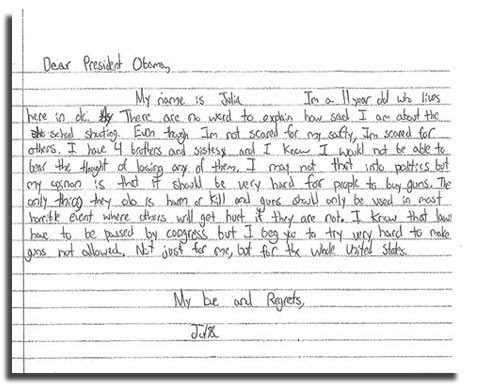 Dear President Obama,
My name is Julia Im a 11 year old who lives
here in dc. There are no word to explain how sad I am about the
school shooting. Even though Im not scared for my safty, Im scared for
others. I have 4 brothers and sisters and I know I would not be able to
bear the thought of losing any of them. I may not that into politics but
my opinon is that it should be very hard for people to buy guns. The
only things they do is hurm or kill and guns should only be used in most
horrible event where others will get hurt if they are not. I know that laws
have to be passed by congress but I beg you to try very hard to make
guns not allowed. Not just for me, but for the whole United States.
My be and Regrets,
Julia